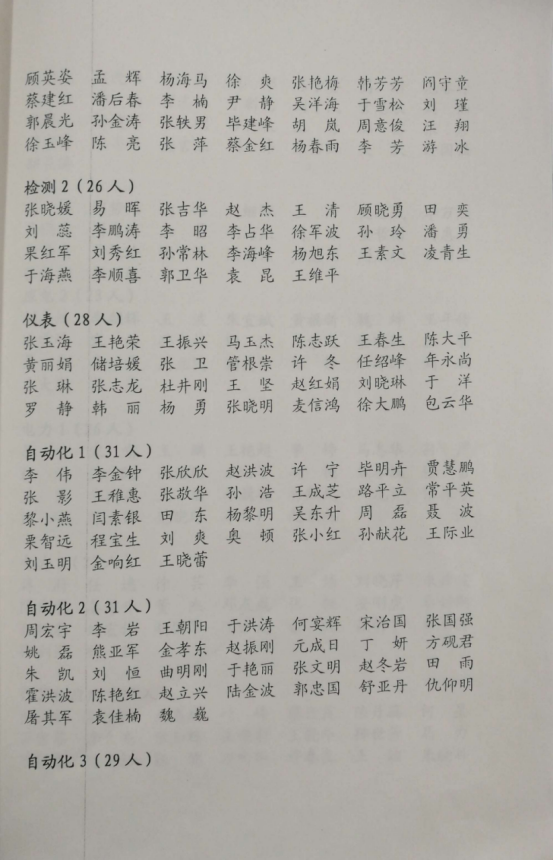 顾英姿 孟辉 杨海马 徐爽 张艳梅 韩芳芳 阎守童
蔡建红 潘后春 李楠 尹静 吴洋海 于雪松 刘瑾
郭晨光 孙金涛 张轶男 毕建峰 胡岚 周意俊 汪翔
徐玉峰 陈亮 张萍 蔡金红 杨春雨 李芳 游冰
检测2(26人)
张晓媛 易晖 张吉华 赵杰 王清 顾晓勇 田奕
刘蕊 李鹏涛 李昭 李占华 徐军波 孙玲 潘勇
果红军 刘秀红 孙常林 李海峰 杨旭东 王素文 凌青生
于海燕 李顺喜 郭卫华 袁昆 王维平
仪表(28人)
张玉海 王艳荣 王振兴 马玉杰 陈志跃 王春生 陈大平
黄丽娟 储培媛 张卫 管根崇 许冬 任绍峰 年永尚
张琳 张志龙 杜井刚 王坚 赵红娟 刘晓琳 于洋
罗静 韩丽 杨勇 张晓明 麦信鸿 徐大鹏 包云华
自动化1(31人)
李伟 李金钟 张欣欣 赵洪波 许宁 毕明卉 贾慧鹏
张影 王稚惠 张敬华 孙浩 王成芝 路平立 常平英
黎小燕 闫素银 田东 杨黎明 吴东升 周磊 聂波
栗智远 程宝生 刘爽 奥顿 张小红 孙献花 王际业
刘玉明 金响红 王晓蕾
自动化2(31人)
周宏宇 李岩 王朝阳 于洪涛 何宴辉 宋治国 张国强
姚磊 熊亚军 金孝东 赵振刚 元成日 丁妍 方砚君
朱凯 刘恒 曲明刚 于艳丽 张文明 赵冬岩 田雨
霍洪波 陈艳红 赵立兴 陆金波 郭忠国 舒亚丹 仇仰明
屠其军 袁佳楠 魏巍
自动化3(29人)